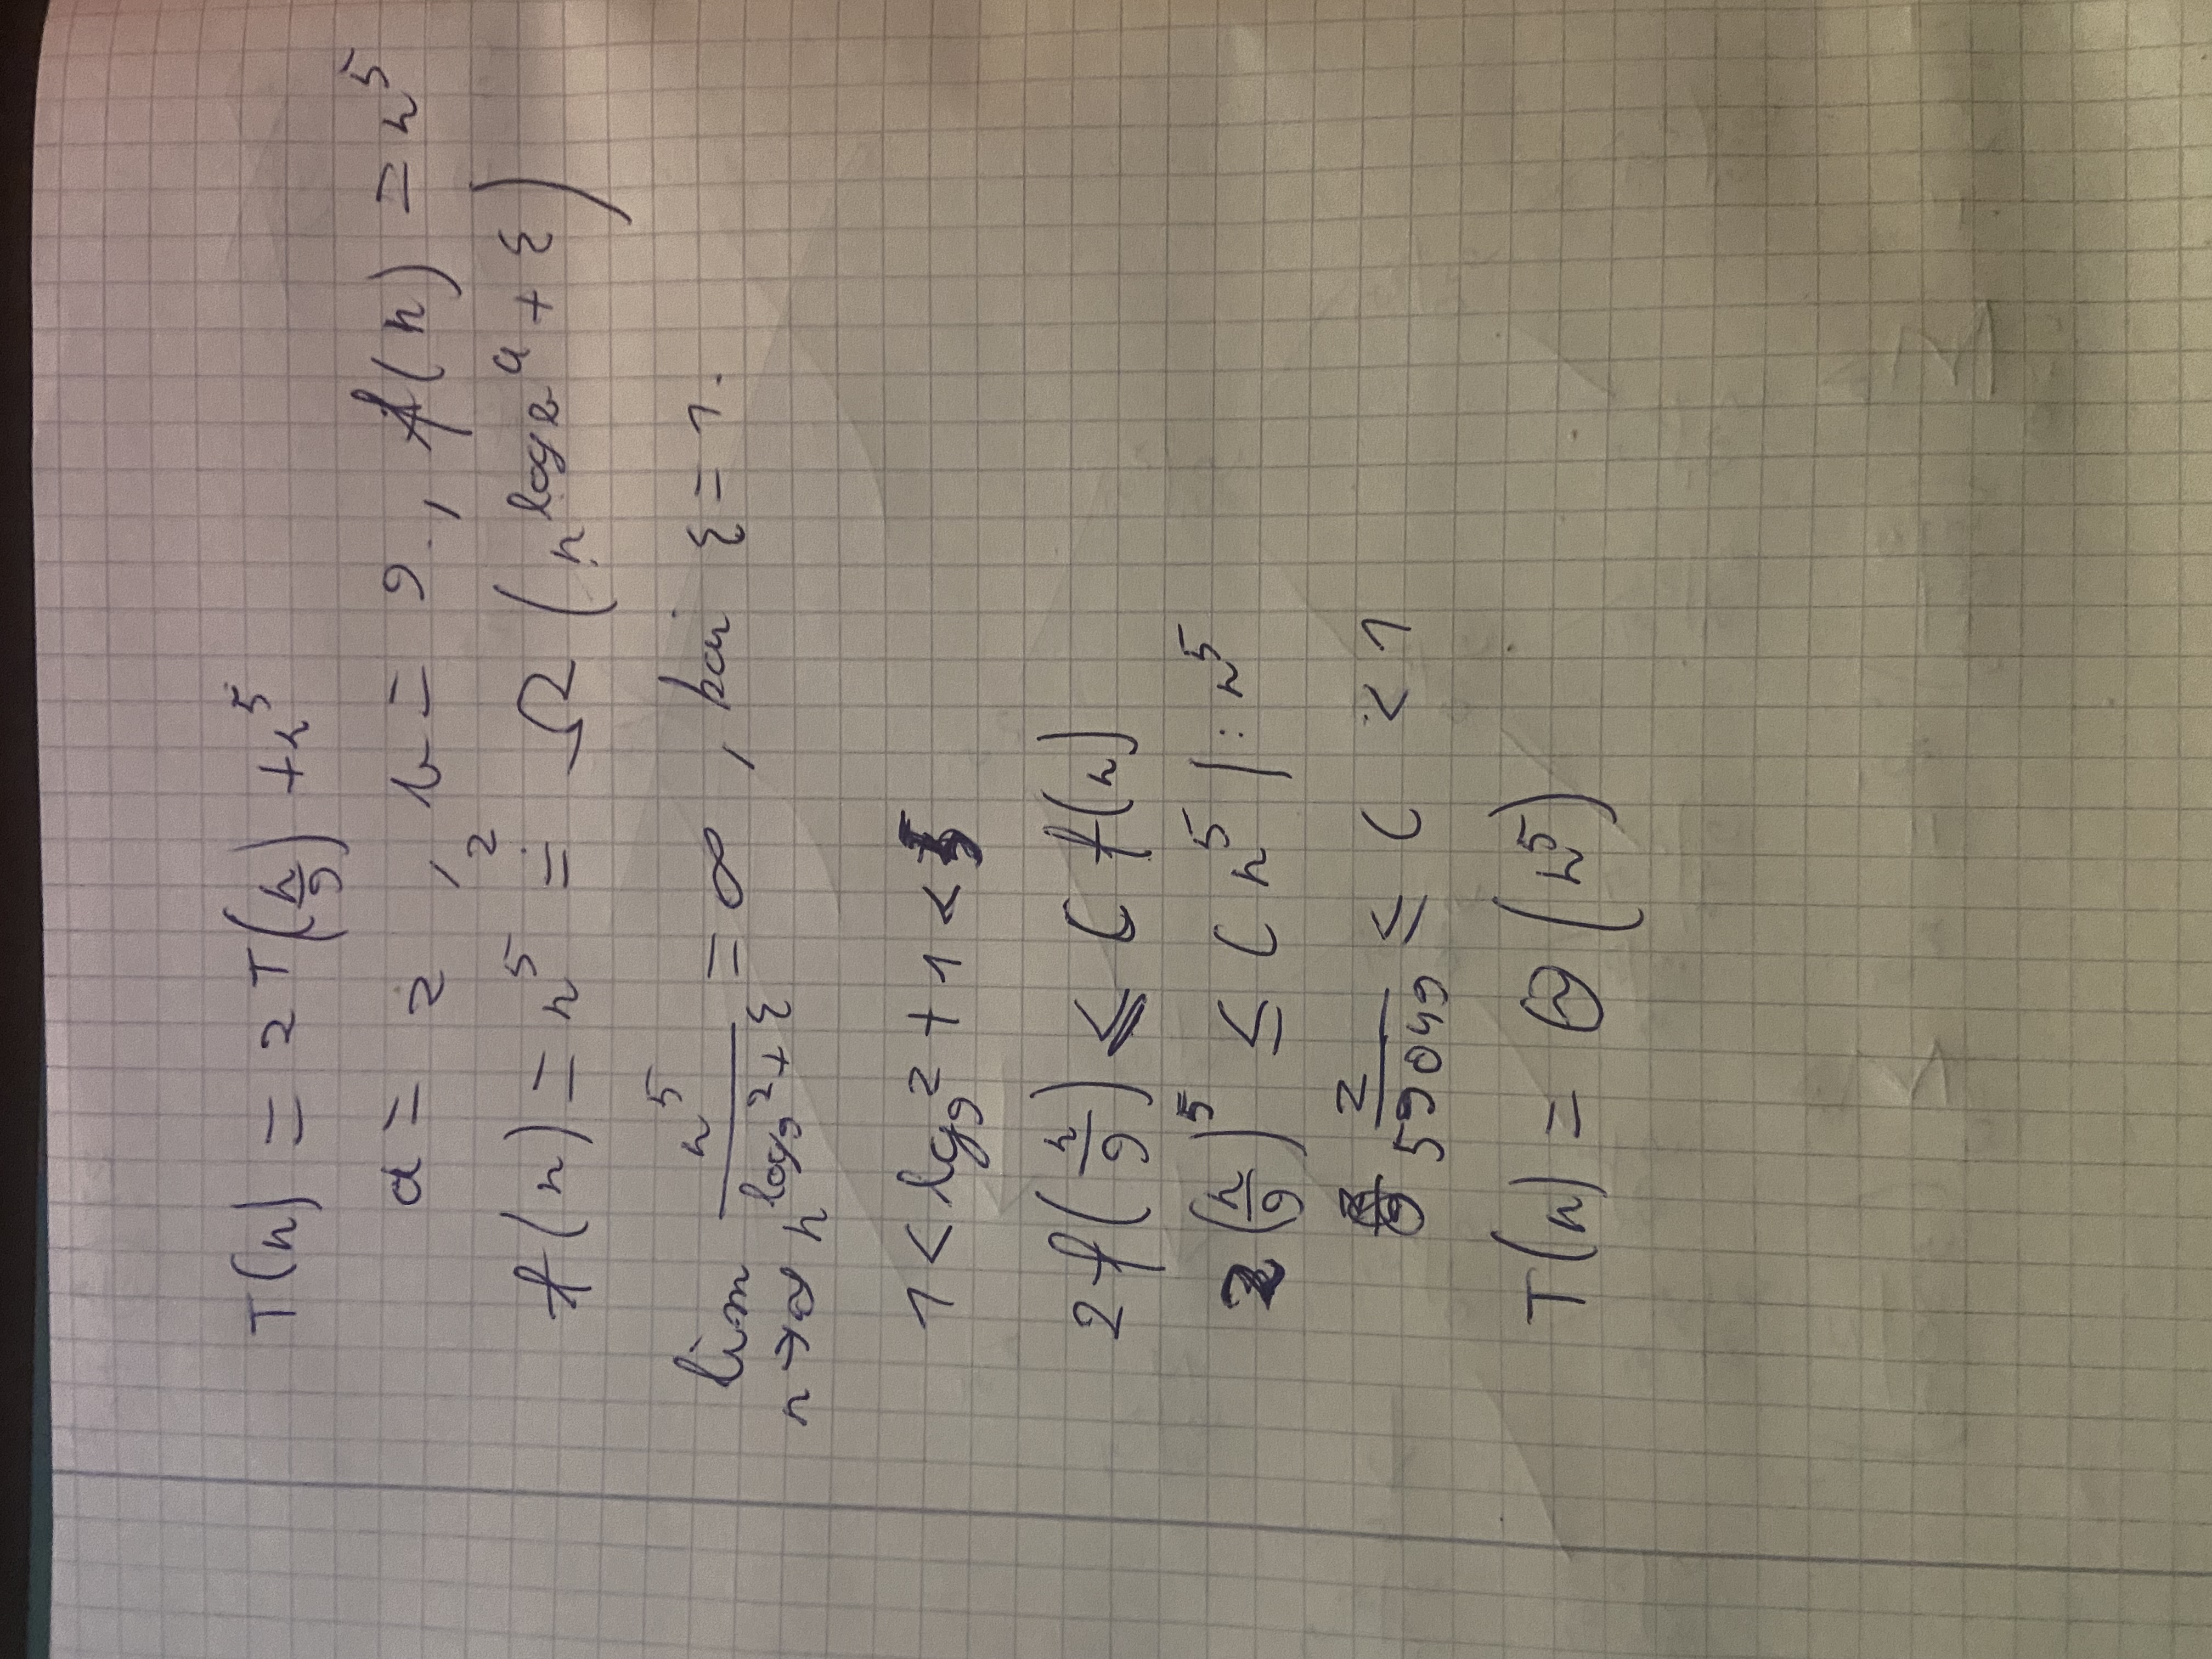 T(n) = 2T(n/9) + n^5
a = 2, b = 9, f(n) = n^5
f(n) = n^5 =^? Ω(n^(log_b a + ε))
lim n→∞ n^5 / n^(log_9 2 + ε) = ∞, kai ε = 1.
1 < log_9 2 + 1 < 5
2f(n/9) ≤ c f(n)
2(n/9)^5 ≤ c n^5 | : n^5
2/59049 ≤ c < 1
T(n) = Θ(n^5)